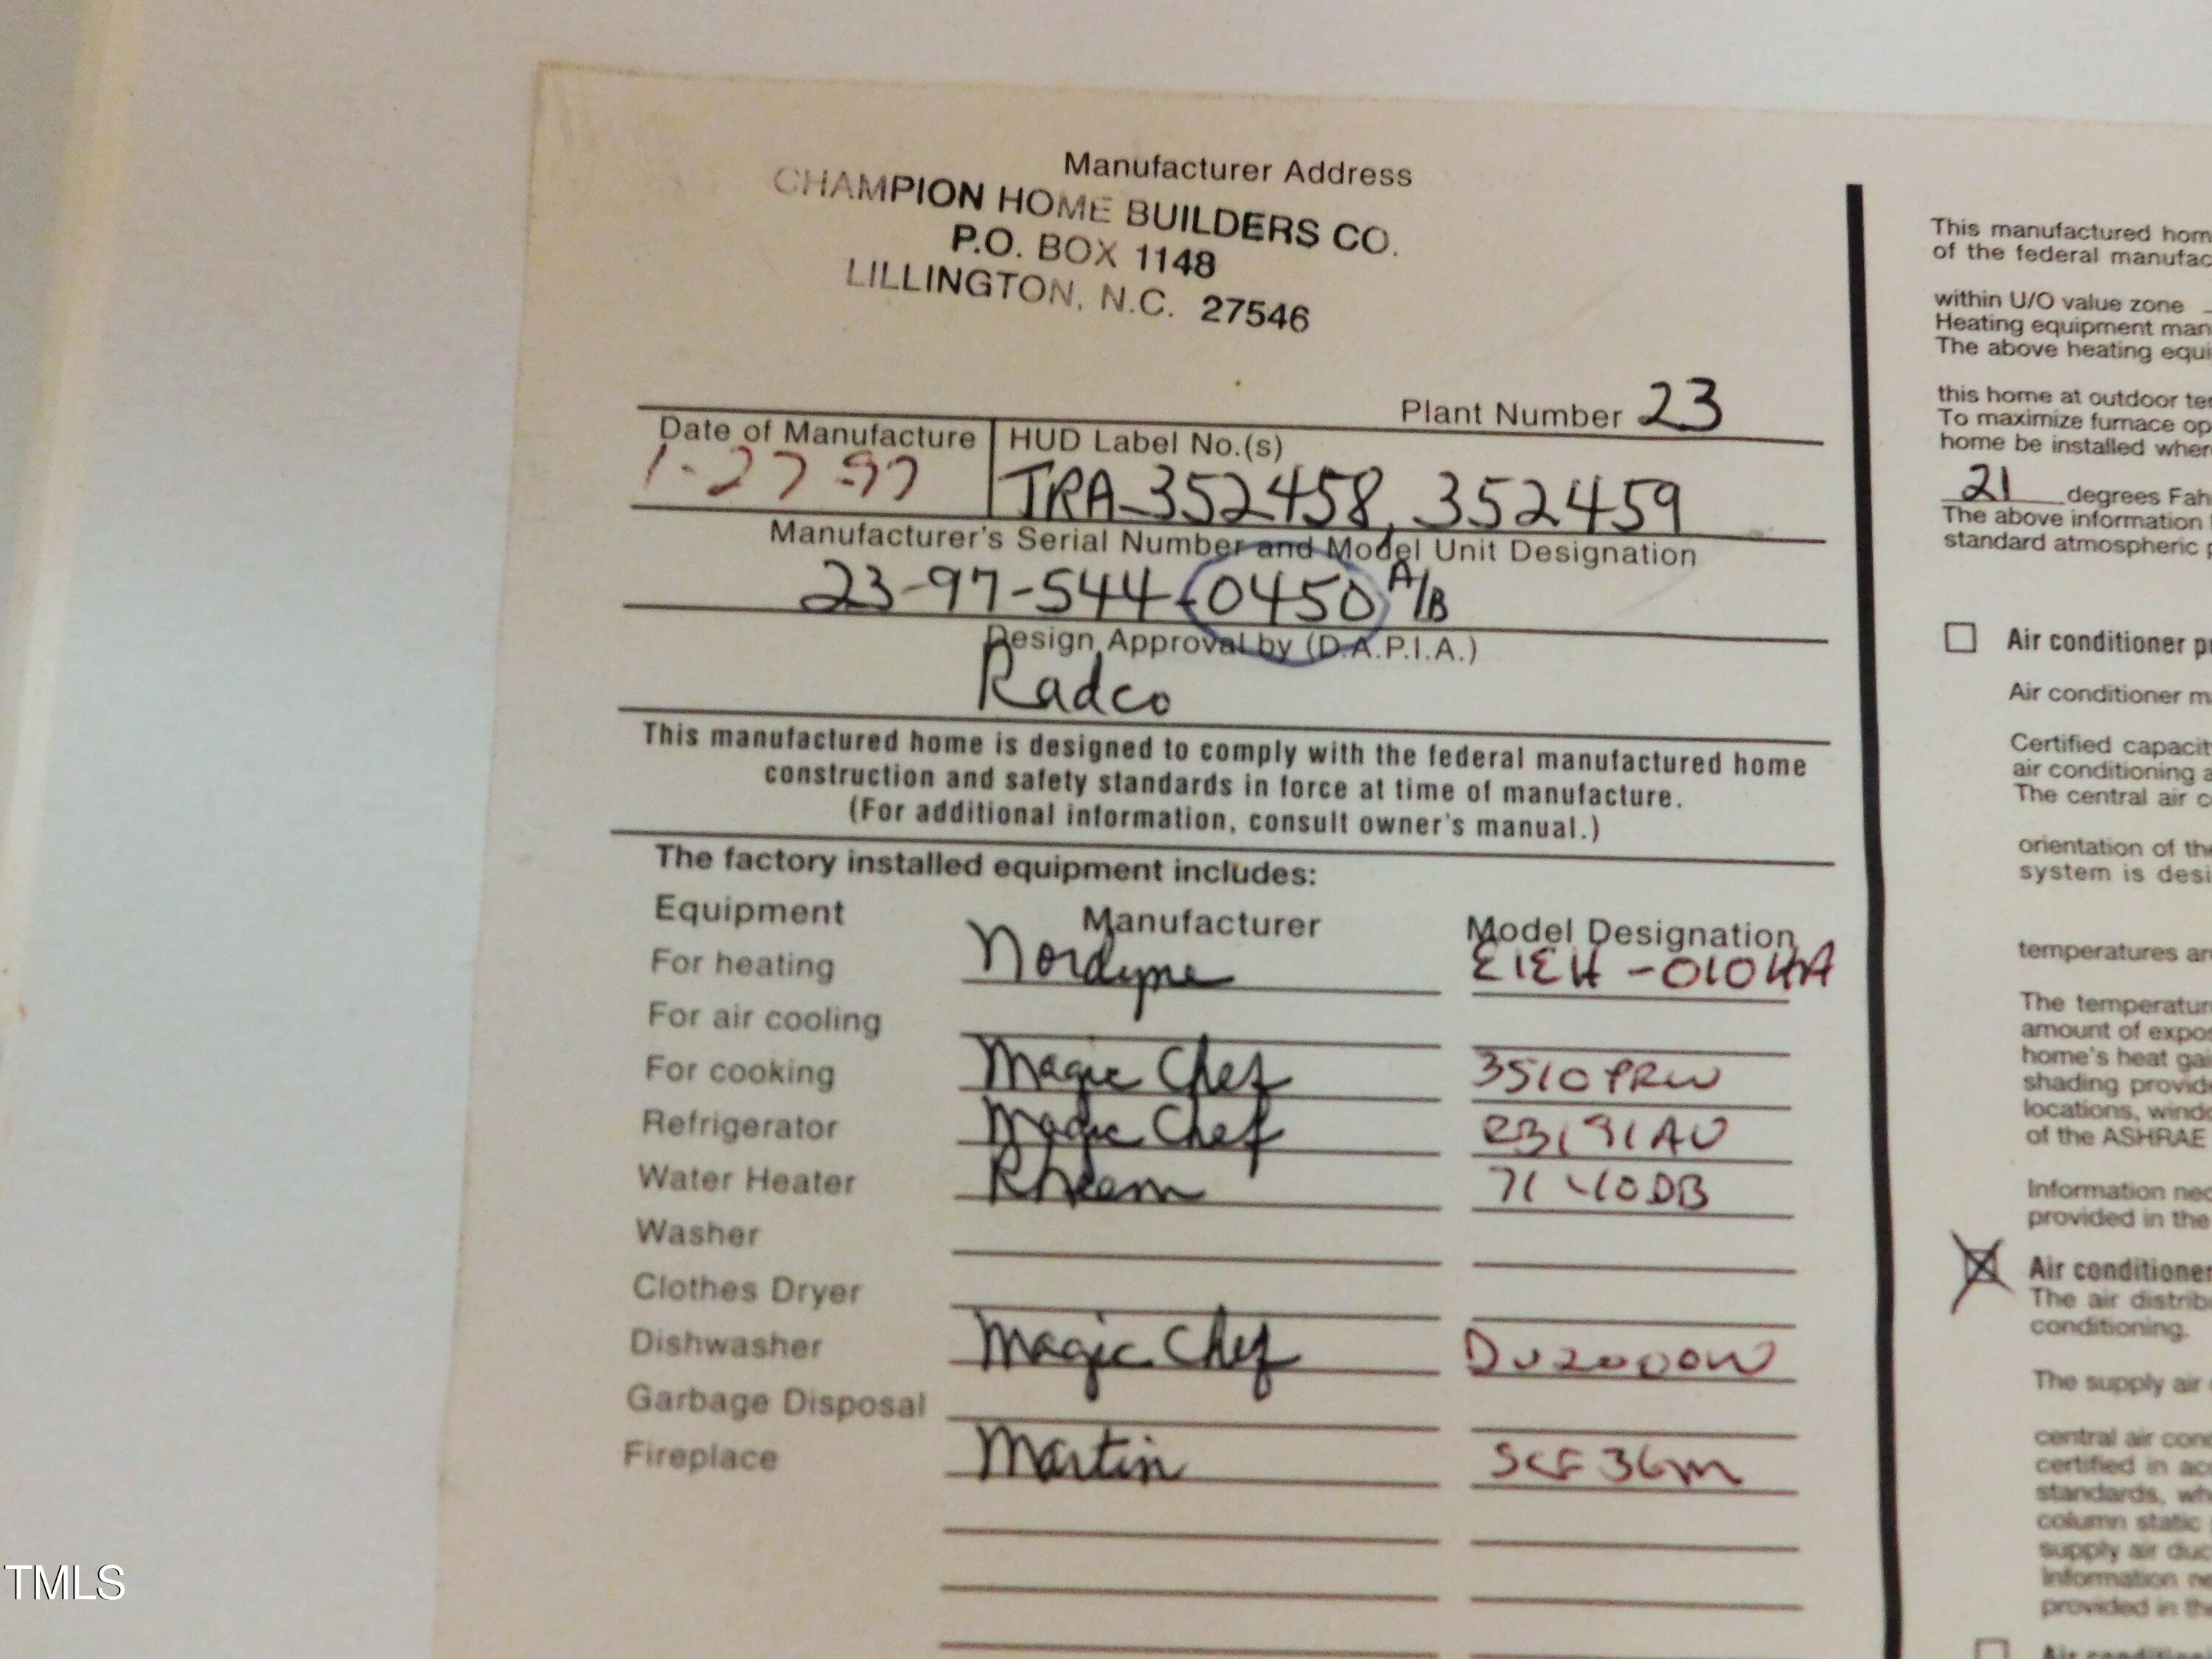 Manufacturer Address
CHAMPION HOME BUILDERS CO.
P.O. BOX 1148
LILLINGTON, N.C. 27546
Plant Number 23
Date of Manufacture
1-27-97
HUD Label No.(s)
TRA-352458, 352459
Manufacturer's Serial Number and Model Unit Designation
23-97-544-0450 A/B
Design Approval by (D.A.P.I.A.)
Radco
This manufactured home is designed to comply with the federal manufactured home
construction and safety standards in force at time of manufacture.
(For additional information, consult owner's manual.)
The factory installed equipment includes:
Equipment Manufacturer Model Designation
For heating Nordyne E1EH-010HA
For air cooling
For cooking Magic Chef 3510PRW
Refrigerator Magic Chef RB191AV
Water Heater Rheem
Washer
Clothes Dryer
Dishwasher Magic Chef DU2000W
Garbage Disposal
Fireplace Martin SCF36M
This manufactured hom
of the federal manufac
within U/O value zone
Heating equipment man
The above heating equi
this home at outdoor te
To maximize furnace op
home be installed wher
21 degrees Fah
The above information
standard atmospheric p
Air conditioner p
Air conditioner m
Certified capacit
air conditioning a
The central air c
orientation of the
system is desi
temperatures ar
The temperatur
amount of expos
home's heat gai
shading provide
locations, windo
of the ASHRAE
Information nec
provided in the
Air conditioner
The air distrib
conditioning.
The supply air
central air cond
certified in ac
standards, wh
column static
supply air duc
Information ne
provided in the
Air condition
TMLS